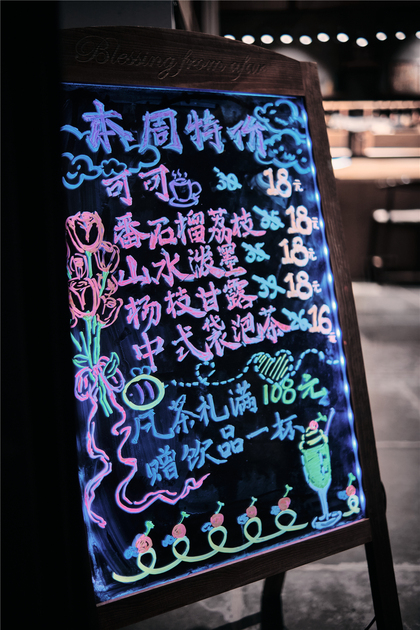 Blessing from afar
本周特价
可可 18元
番石榴荔枝 35 18元
山水泼墨 35 18元
杨枝甘露 38 18元
中式袋泡茶 26 16元
凡茶礼满108元
赠饮品一杯